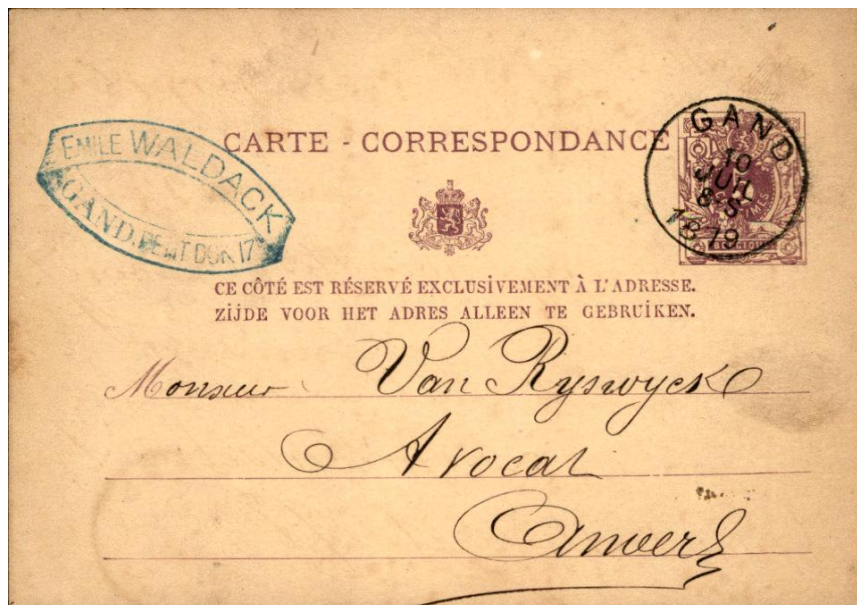 EMILE WALDACK
GAND.
CARTE - CORRESPONDANCE
GAND
10
JUIL
8-S
1879
CE CÔTÉ EST RÉSERVÉ EXCLUSIVEMENT À L'ADRESSE.
ZIJDE VOOR HET ADRES ALLEEN TE GEBRUIKEN.
Monsieur Van Ryswyck
Avocat
Anvers